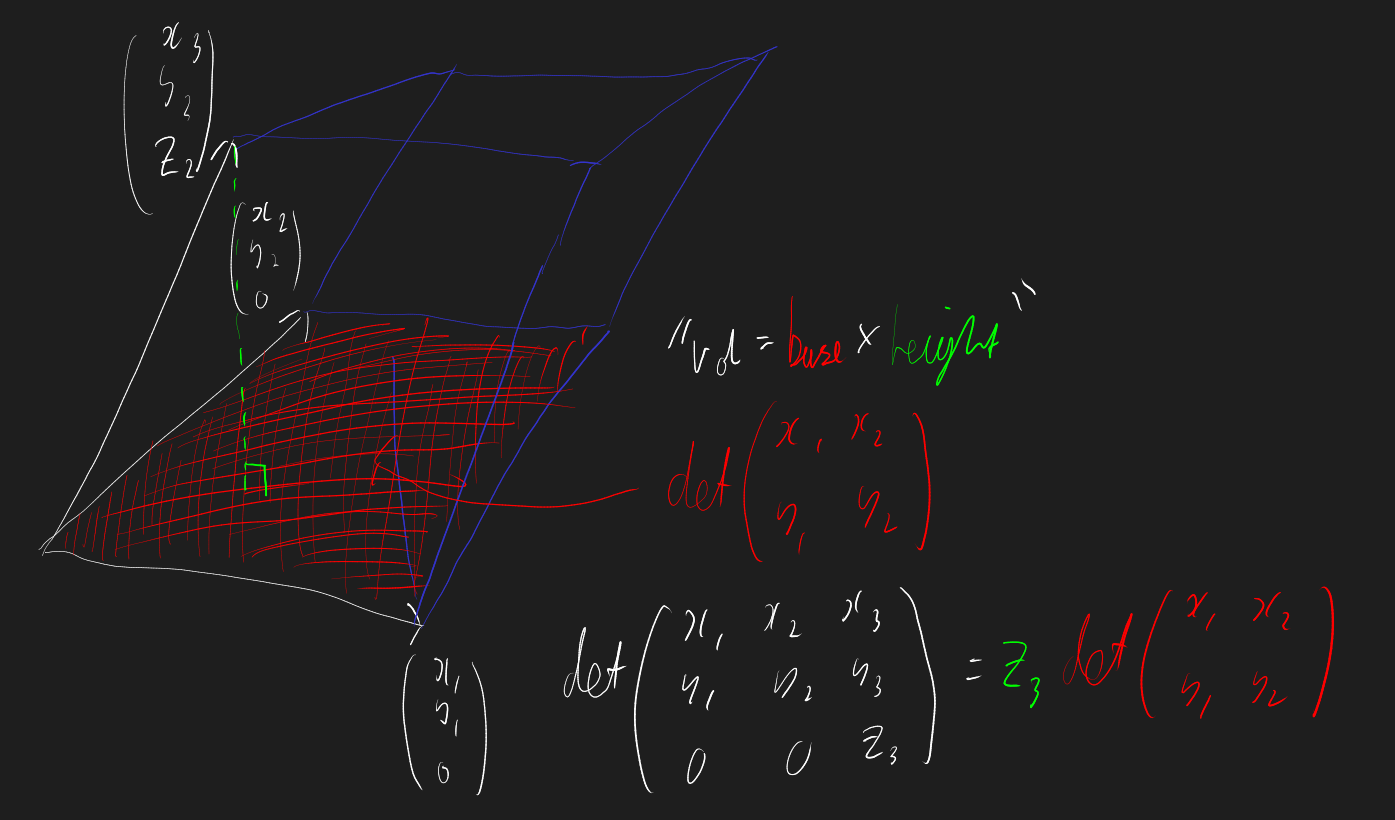 ( x₃
y₂
z₂ )
( x₂
y₂
0 )
"vol = base × height"
det ( x₁ x₂
y₁ y₂ )
( x₁
y₁
0 )
det ( x₁ x₂ x₃
y₁ y₂ y₃
0 0 z₃ ) = z₃ det ( x₁ x₂
y₁ y₂ )